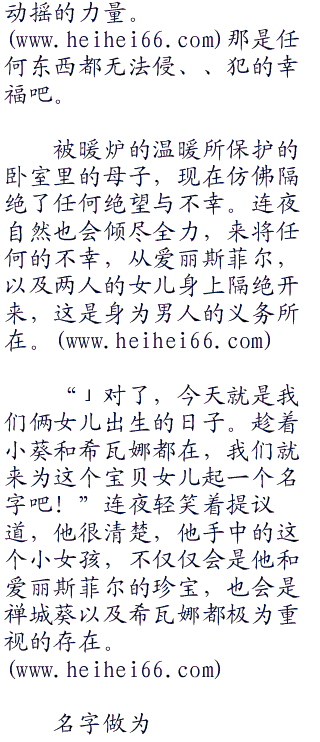 动摇的力量。
(www.heihei66.com)那是任
何东西都无法侵、、犯的幸
福吧。
被暖炉的温暖所保护的
卧室里的母子，现在仿佛隔
绝了任何绝望与不幸。连夜
自然也会倾尽全力，来将任
何的不幸，从爱丽斯菲尔，
以及两人的女儿身上隔绝开
来，这是身为男人的义务所
在。(www.heihei66.com)
“」对了，今天就是我
们俩女儿出生的日子。趁着
小葵和希瓦娜都在，我们就
来为这个宝贝女儿起一个名
字吧！”连夜轻笑着提议
道，他很清楚，他手中的这
个小女孩，不仅仅会是他和
爱丽斯菲尔的珍宝，也会是
禅城葵以及希瓦娜都极为重
视的存在。
(www.heihei66.com)
名字做为